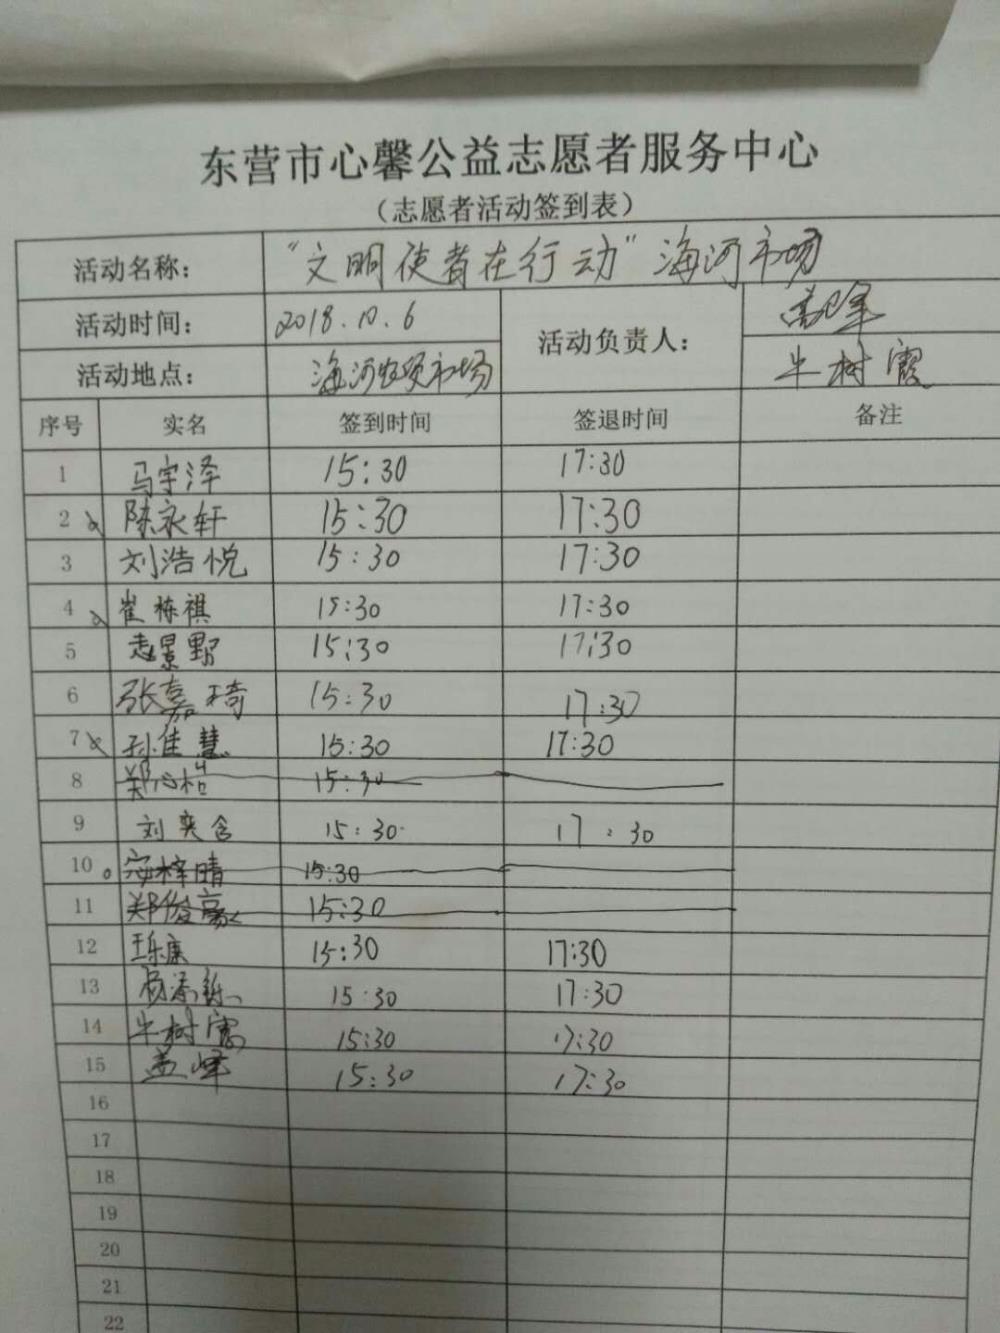 东营市心馨公益志愿者服务中心
（志愿者活动签到表）
活动名称： “文明使者在行动”海河市场
活动时间： 2018.10.6 活动负责人： 峰
活动地点： 海河农贸市场 牛树霞
序号 实名 签到时间 签退时间 备注
1 马宇泽 15:30 17:30
2 陈永轩 15:30 17:30
3 刘浩悦 15:30 17:30
4 崔栋祺 15:30 17:30
5 景野 15:30 17:30
6 张嘉琦 15:30 17:30
7 孙佳慧 15:30 17:30
8 郑心怡 15:30
9 刘奕含 15:30 17:30
10 梓晴 15:30
11 郑俊豪 15:30
12 王乐康 15:30 17:30
13 15:30 17:30
14 牛树霞 15:30 17:30
15 峰 15:30 17:30
16
17
18
19
20
21
22